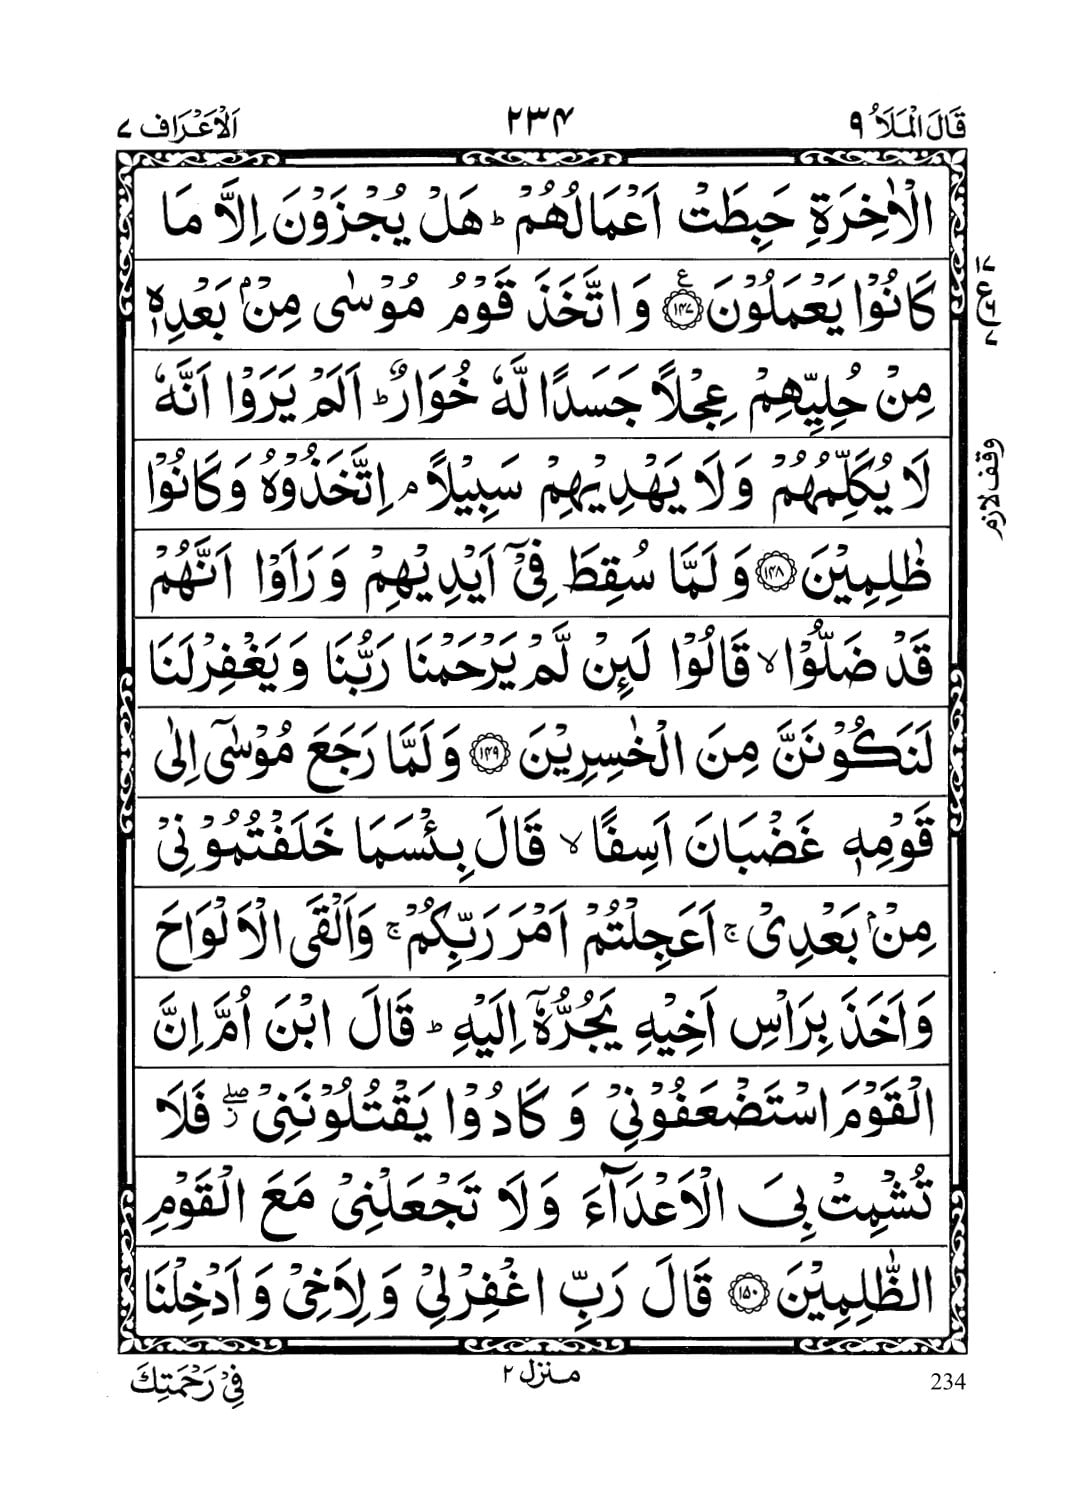 قَالَ الْمَلَاُ ٩
٢٣٤
اَلْاَعْرَاف ٧
الْاٰخِرَةِ حَبِطَتْ اَعْمَالُهُمْ ؕ هَلْ يُجْزَوْنَ اِلَّا مَا
كَانُوْا يَعْمَلُوْنَ ﴿۱۴۷﴾ ع وَاتَّخَذَ قَوْمُ مُوْسٰى مِنْۢ بَعْدِهٖ
مِنْ حُلِيِّهِمْ عِجْلًا جَسَدًا لَّهٗ خُوَارٌ ؕ اَلَمْ يَرَوْا اَنَّهٗ
لَا يُكَلِّمُهُمْ وَلَا يَهْدِيْهِمْ سَبِيْلًا ۘ اِتَّخَذُوْهُ وَكَانُوْا
ظٰلِمِيْنَ ﴿۱۴۸﴾ وَلَمَّا سُقِطَ فِىْۤ اَيْدِيْهِمْ وَرَاَوْا اَنَّهُمْ
قَدْ ضَلُّوْا ۙ قَالُوْا لَئِنْ لَّمْ يَرْحَمْنَا رَبُّنَا وَيَغْفِرْ لَنَا
لَنَكُوْنَنَّ مِنَ الْخٰسِرِيْنَ ﴿۱۴۹﴾ وَلَمَّا رَجَعَ مُوْسٰۤى اِلٰى
قَوْمِهٖ غَضْبَانَ اَسِفًا ۙ قَالَ بِئْسَمَا خَلَفْتُمُوْنِىْ
مِنْۢ بَعْدِىْ ۚ اَعَجِلْتُمْ اَمْرَ رَبِّكُمْ ۚ وَاَلْقَى الْاَلْوَاحَ
وَاَخَذَ بِرَاْسِ اَخِيْهِ يَجُرُّهٗۤ اِلَيْهِ ؕ قَالَ ابْنَ اُمَّ اِنَّ
الْقَوْمَ اسْتَضْعَفُوْنِىْ وَكَادُوْا يَقْتُلُوْنَنِىْ ۖز فَلَا
تُشْمِتْ بِىَ الْاَعْدَآءَ وَلَا تَجْعَلْنِىْ مَعَ الْقَوْمِ
الظّٰلِمِيْنَ ﴿۱۵۰﴾ قَالَ رَبِّ اغْفِرْ لِىْ وَلِاَخِىْ وَاَدْخِلْنَا
وقف لازم
فِىْ رَحْمَتِكَ
منزل ٢
234